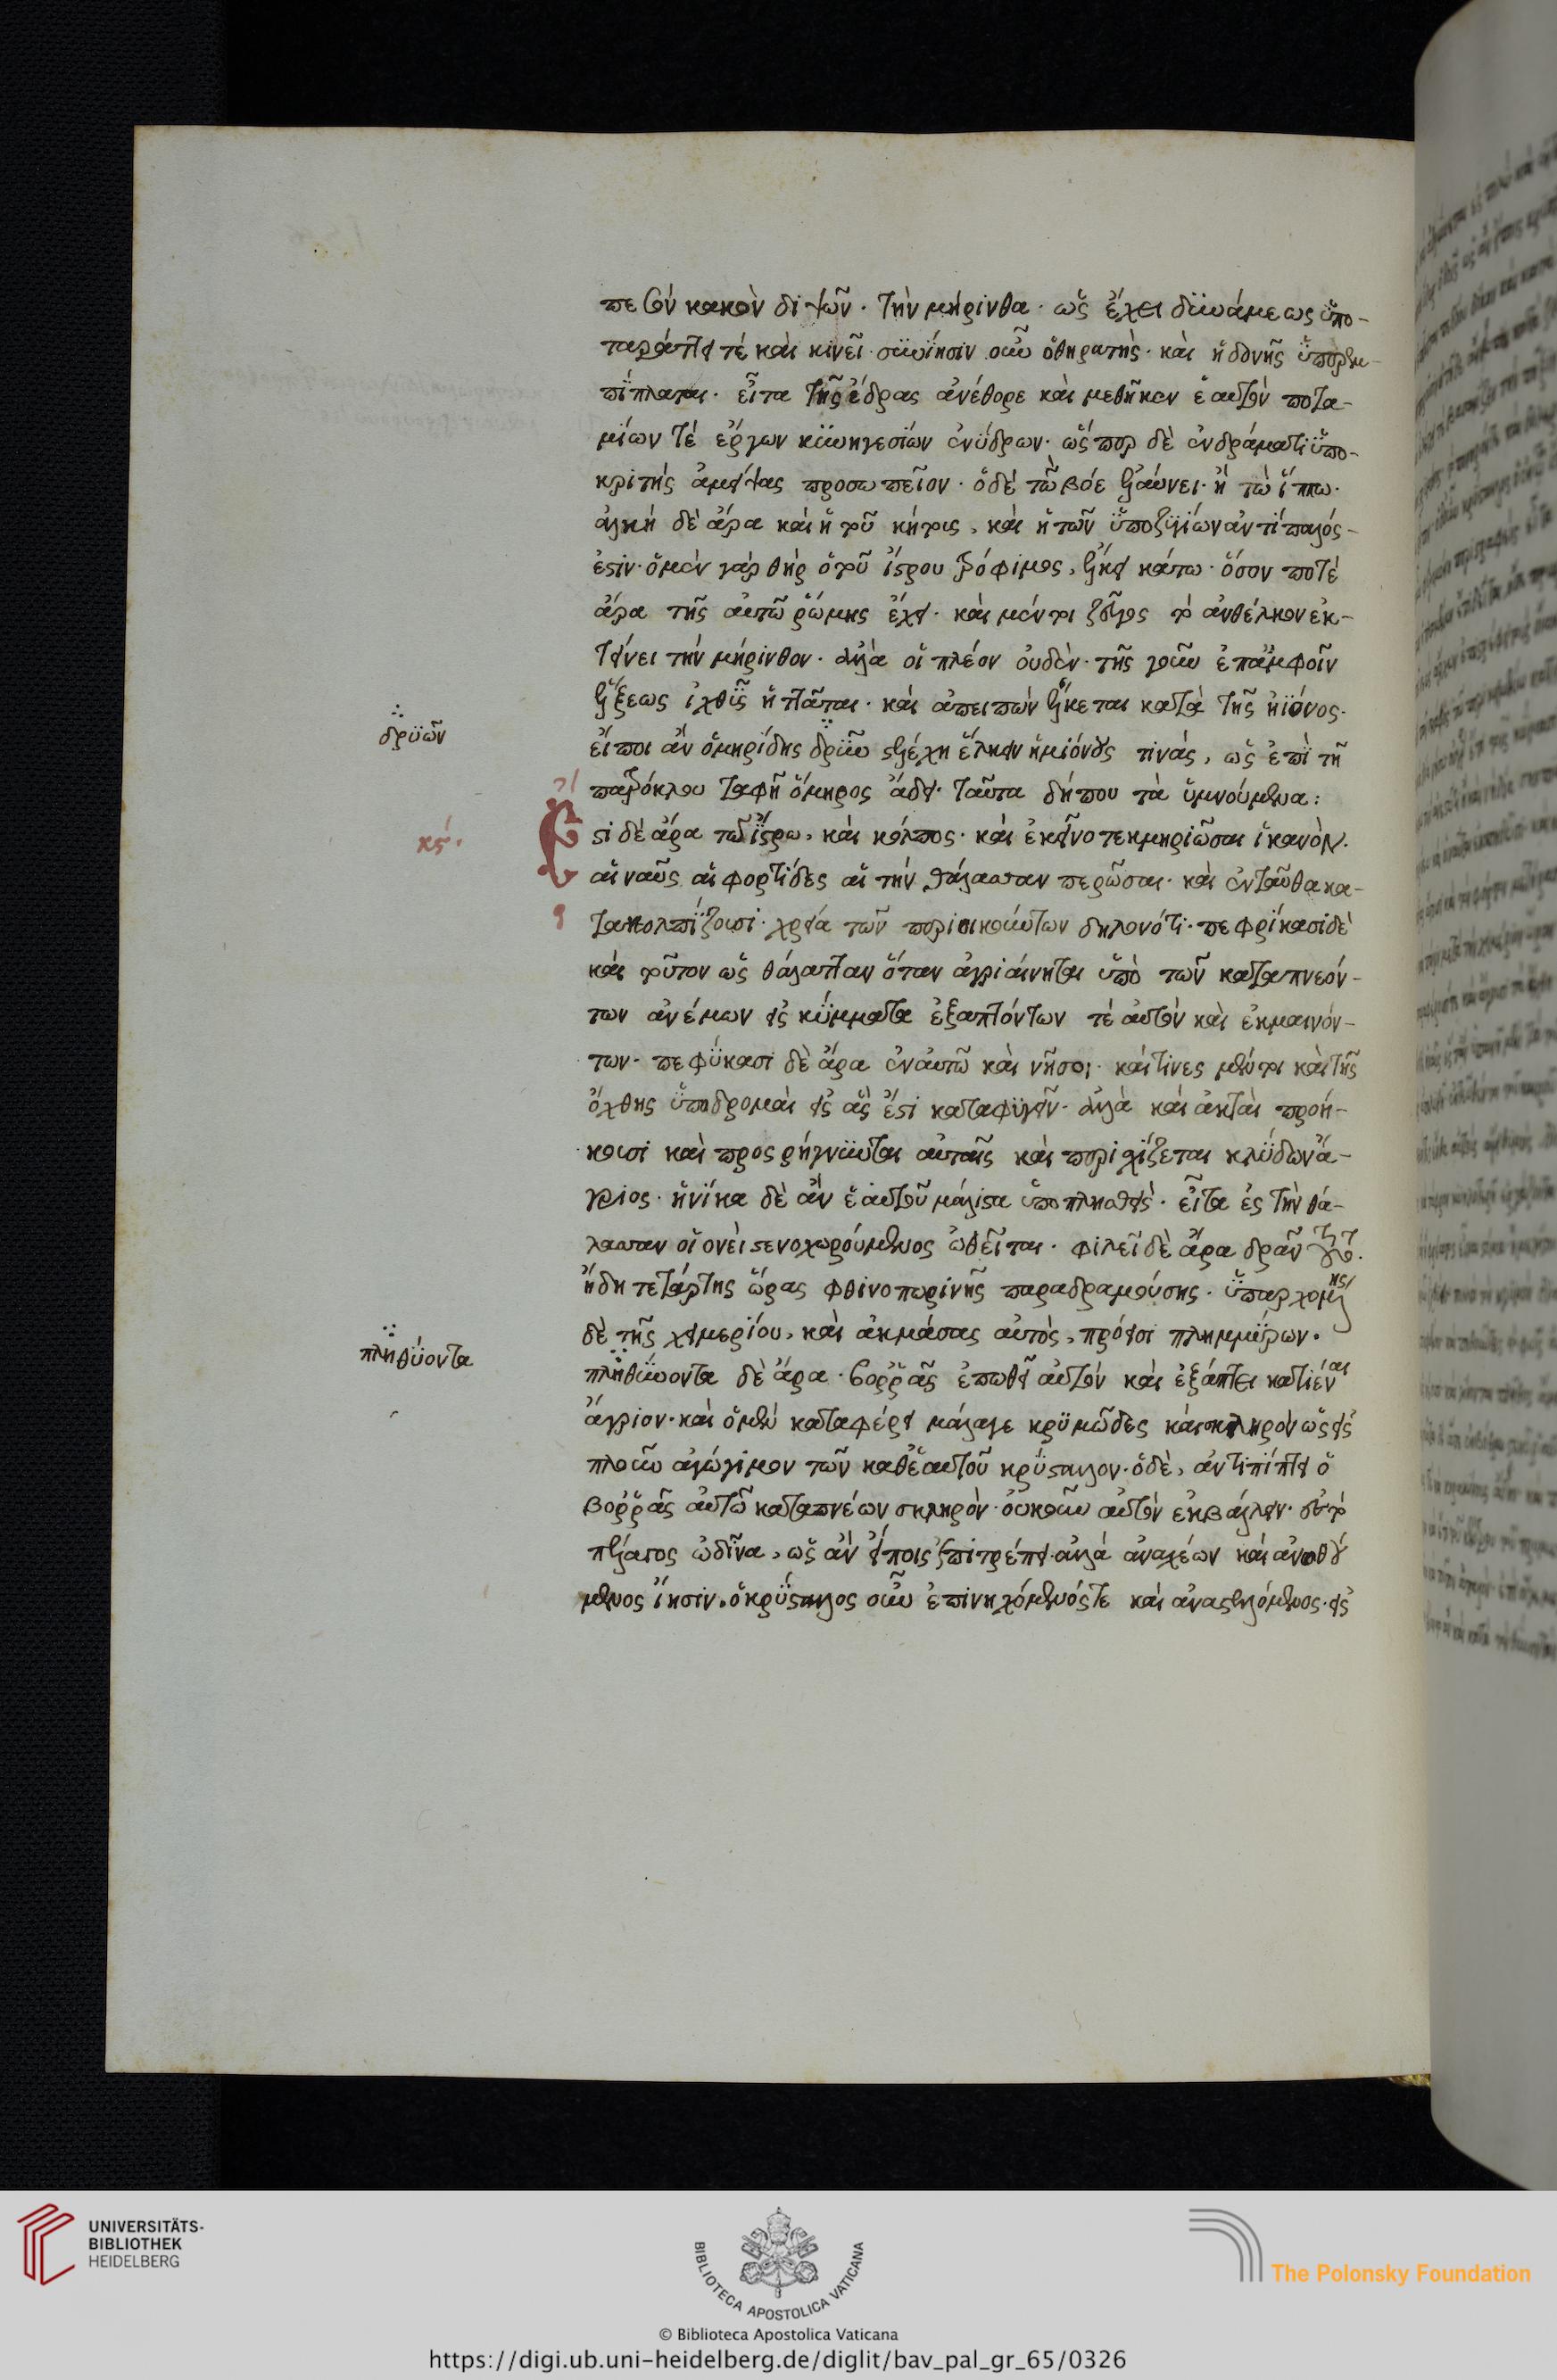 πεσὸν κακὸν διϊὼν. τὴν μήρινθα. ὡς ἔχει δυνάμεως ὑπο-
ταράττει τὲ καὶ κινεῖ. συνίησιν οὖν ὁ θηρατὴς. καὶ ἡδονῆς ὑπερεμ-
πίπλαται. εἶτα τῆς ἕδρας ἀνέθορε καὶ μεθῆκεν ἑαυτὸν ποτα-
μίων τὲ ἔργων κυνηγεσίων ἐνύδρων. ὥσπερ δὲ ἐν δράματι ὑπο-
κριτὴς ἀμείψας προσωπεῖον. ὁ δὲ τὼ βόε ἐλαύνει. ἢ τὼ ἵππω.
ἀλκὴ δὲ ἄρα καὶ ἡ τοῦ κήτους, καὶ ἡ τῶν ὑποζυγίων ἀντίπαλός
ἐστιν. ὁ μὲν γὰρ θὴρ ὁ τοῦ ἴστρου τρόφιμος, ἕλκει κάτω. ὅσον ποτὲ
ἄρα τῆς αὐτῶ ῥώμης ἔχει. καὶ μέντοι ζεῦγος τὸ ἀνθέλκον ἐκ-
τείνει τὴν μήρινθον. ἀλλὰ οἱ πλέον οὐδὲν. τῆς γοῦν ἐπ' ἀμφοῖν
ἕλξεως ἰχθῦς ἡττᾶται. καὶ ἀπειπὼν ἕλκεται κατὰ τῆς ἠϊόνος.
δρυῶν
εἴποι ἂν ὁμηρίδης δρῦν στελέχη ἕλκειν ἡμιόνους τινὰς, ὡς ἐπὶ τῇ
πατρόκλου ταφῇ ὅμηρος ἄδει. ταῦτα δήπου τὰ ὑμνούμενα:
κς.
Ἔστι δὲ ἄρα τῶ ἴστρω, καὶ κόλπος. καὶ ἐκεῖνο τεκμηριῶσαι ἱκανὸν.
αἱ ναῦς αἱ φορτίδες αἱ τὴν θάλασσαν περῶσαι. καὶ ἐνταῦθα κα-
τακολπίζουσι. χρεία τῶν περιοικούντων δηλονότι. πεφρίκασι δὲ
καὶ τοῦτον ὡς θάλατταν ὅταν ἀγριαίνηται ὑπὸ τῶν καταπνεόν-
των ἀνέμων εἰς κύμματα ἐξαπτόντων τὲ αὐτὸν καὶ ἐκμαινόν-
των. πεφύκασι δὲ ἄρα ἐν αὐτῶ καὶ νῆσοι. καὶ τινες μέντοι καὶ τῆς
ὄχθης ὑποδρομαὶ εἰς ἃς ἔστι καταφυγεῖν. ἀλλὰ καὶ ἀκταὶ προή-
κουσι καὶ προσρήγνυται αὐταῖς καὶ περισχίζεται κλύδων ἄ-
γριος. ἡνίκα δὲ ἂν ἑαυτοῦ μάλιστα ὑποπλησθεὶς. εἶτα ἐς τὴν θά-
λασσαν οἱονεὶ στενοχωρούμενος ὠθεῖται. φιλεῖ δὲ ἄρα δρᾶν τοῦτο.
ἤδη τετάρτης ὥρας φθινοπωρινῆς παραδραμούσης. ὑπαρχομένης
δὲ τῆς χειμερίου, καὶ ἀκμάσας αὐτὸς, πρόεισι πλημμύρων.
πληθύοντα
πληθύνοντα δὲ ἄρα. βορρᾶς ἐπωθεῖ αὐτὸν καὶ ἐξάπτει κατιέναι
ἄγριον. καὶ ὁ μὲν καταφέρει μάλαγε κρυμῶδες καὶ σκληρὸν ὡς εἰς
πλοῦν ἀγώγιμον τῶν καθ' ἑαυτοῦ κρύσταλλον. ὁ δὲ, ἀντιπίπτει ὁ
βορρᾶς αὐτῶ καταπνέων σκληρὸν. οὐκοῦν αὐτὸν ἐκβάλλειν. ἐς τὸ
πέλαγος ὠδῖνα, ὡς ἂν εἴποις ἐπιτρέπει. ἀλλὰ ἀναχέων καὶ ἀνωθού
μενος ἵησιν. ὁ κρύσταλλος οὖν ἐπινηχόμενός τε καὶ ἀναστελλόμενος. εἰς
UNIVERSITÄTS-
BIBLIOTHEK
HEIDELBERG
BIBLIOTECA APOSTOLICA VATICANA
The Polonsky Foundation
© Biblioteca Apostolica Vaticana
https://digi.ub.uni-heidelberg.de/diglit/bav_pal_gr_65/0326